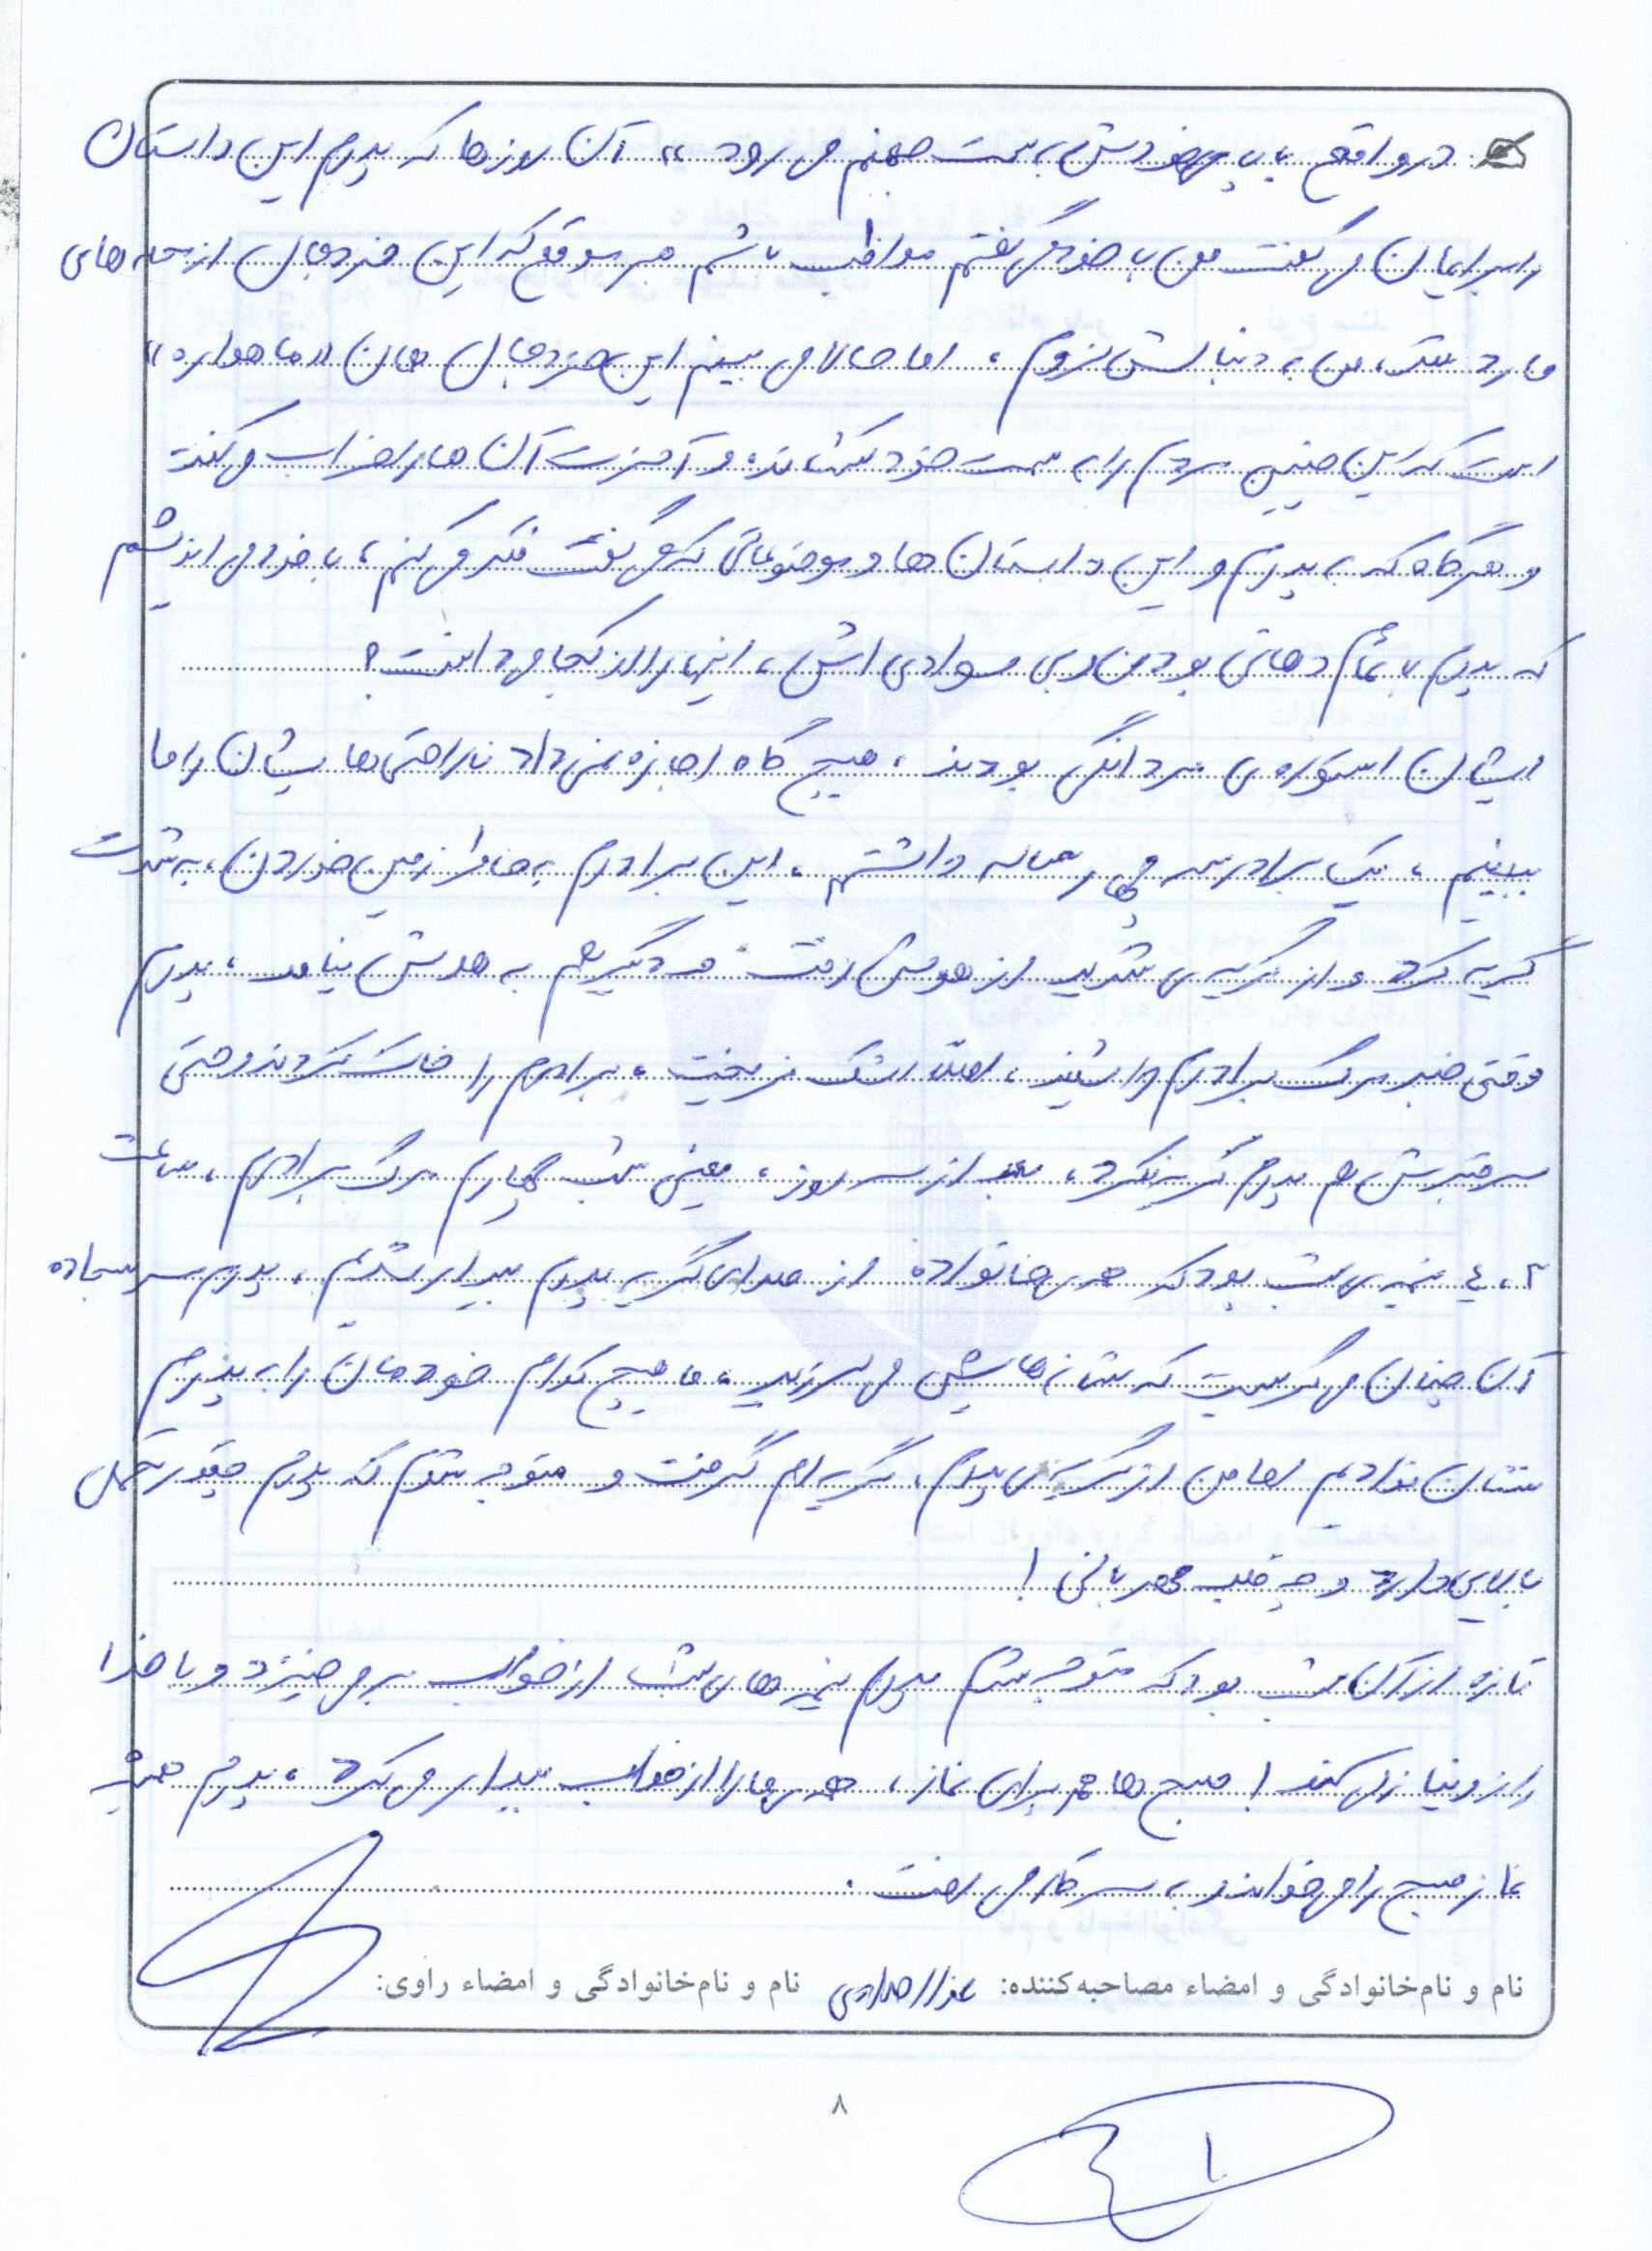 در واقع با پای خودش به سمت جهنم می رود » آن روزها که پدرم این داستان
را برایمان می گفت من با خودم گفتم مواظب باشم هر موقع که این خردجال از محله های
ما رد شد، من به دنبالش نروم ، اما حالا می بینم این خردجال همان «ماهواره»
است که این چنین مردم را به سمت خود کشانده و آخرت آن ها را خراب می کند
و هرگاه که به پدرم و این داستان ها و موضوعاتی که می گفت فکر می کنم ، با خود می اندیشم
که پدرم با تمام دهاتی بودن و بی سوادی اش ، این ها را از کجا می دانست ؟
ایشان اسطوره ی مردانگی بودند ، هیچ گاه اجازه نمی داد ناراحتی هایشان را ما
ببینیم ، یک برادر سه چهار ساله داشتم ، این برادرم به خاطر زمین خوردن ، به شدت
گریه کرد و از گریه ی شدید از هوش رفت و دیگر هم به هوش نیامد ، پدرم
وقتی خبر مرگ برادرم را شنید ، اصلاً اشک نریخت ، برادرم را خاک کردند و حتی
سر قبرش هم پدرم گریه نکرد ، بعد از سه روز ، یعنی شب چهارم مرگ برادرم ، ساعت
۲ ، ٤ نیمه ی شب بود که همه ی خانواده از صدای گریه پدرم بیدار شدیم ، پدرم سر سجاده
آن چنان می گریست که شانه هایش می لرزید ، ما هیچ کدام خودمان را به پدرم
نشان ندادیم اما من از گریه ی پدرم ، گریه ام گرفت و متوجه شدم که پدرم چقدر تحمل
بالایی دارد و چه قلب مهربانی !
تازه از آن شب بود که متوجه شدم پدرم نیمه های شب از خواب برمی خیزد و با خدا
راز و نیاز می کند ! صبح ها هم برای نماز ، همه ی ما را از خواب بیدار می کرد ، پدرم همیشه
نماز صبح را می خواند و به سر کار می رفت .
نام و نام‌خانوادگی و امضاء مصاحبه‌کننده: نام و نام‌خانوادگی و امضاء راوی:
۸